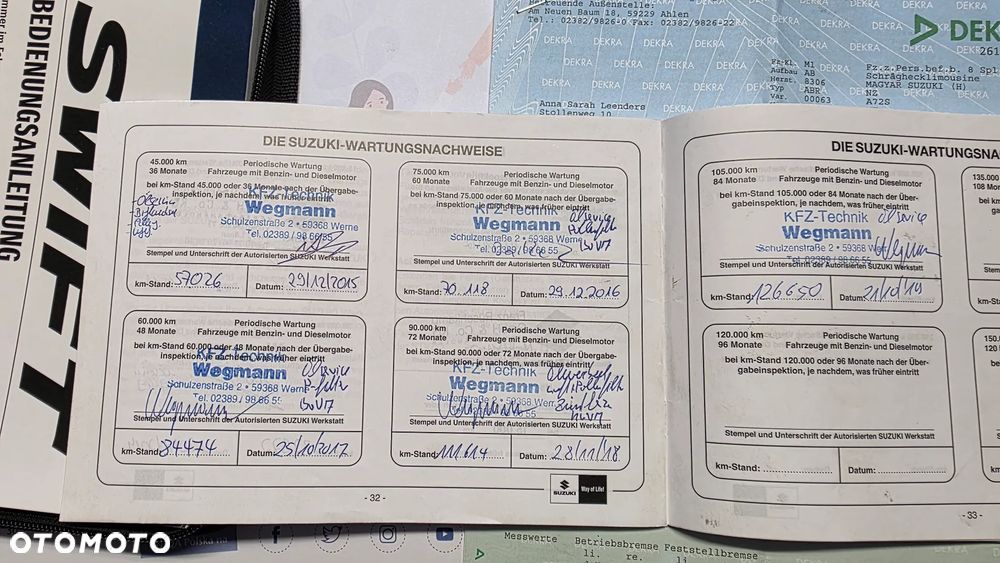 BEDIENUNGSANLEITUNG
SWIFT
Am Neuen Baum 18, 59229 Ahlen
Tel.: 02382/9826-0 Fax: 02382/9826-22
DEKRA
Anna Sarah Leenders
Stollenweg 10
Fz.-Kl. M1
Aufbau AB
Herst. 8306
Typ ABR
Var. 00063
Fz.z.Pers.bef.b. 8 Spl
Schräghecklimousine
MAGYAR SUZUKI (H)
NZ
A72S
DIE SUZUKI-WARTUNGSNACHWEISE
45.000 km
36 Monate
Periodische Wartung
Fahrzeuge mit Benzin- und Dieselmotor
bei km-Stand 45.000 oder 36 Monate nach der Übergabe-
inspektion, je nachdem, was früher eintritt
KFZ-Technik
Wegmann
Schulzenstraße 2 • 59368 Werne
Tel. 02389 / 98 66 55
Stempel und Unterschrift der Autorisierten SUZUKI Werkstatt
km-Stand: 57026
Datum: 29/12/2015
75.000 km
60 Monate
Periodische Wartung
Fahrzeuge mit Benzin- und Dieselmotor
bei km-Stand 75.000 oder 60 Monate nach der Übergabe-
inspektion, je nachdem, was früher eintritt
KFZ-Technik
Wegmann
Schulzenstraße 2 • 59368 Werne
Tel. 02389 / 98 66 55
Ölservice
Pollenfilt
BoV17
Stempel und Unterschrift der Autorisierten SUZUKI Werkstatt
km-Stand: 70.118
Datum: 29.12.2016
60.000 km
48 Monate
Periodische Wartung
Fahrzeuge mit Benzin- und Dieselmotor
bei km-Stand 60.000 oder 48 Monate nach der Übergabe-
inspektion, je nachdem, was früher eintritt
KFZ-Technik
Wegmann
Schulzenstraße 2 • 59368 Werne
Tel. 02389 / 98 66 55
Ölservice
P-filter
BoV17
Wegmann
Stempel und Unterschrift der Autorisierten SUZUKI Werkstatt
km-Stand: 84474
Datum: 25/10/2017
90.000 km
72 Monate
Periodische Wartung
Fahrzeuge mit Benzin- und Dieselmotor
bei km-Stand 90.000 oder 72 Monate nach der Übergabe-
inspektion, je nachdem, was früher eintritt
KFZ-Technik
Wegmann
Schulzenstraße 2 • 59368 Wer
55
Wegmann
Stempel und Unterschrift der Autorisierten SUZUKI Werkstatt
km-Stand: 111.614
Datum: 28/11/18
SUZUKI
Way of Life!
- 32 -
DIE SUZUKI-WARTUNGSNA
105.000 km
84 Monate
Periodische Wartung
Fahrzeuge mit Benzin- und Dieselmotor
bei km-Stand 105.000 oder 84 Monate nach der Über-
gabeinspektion, je nachdem, was früher eintritt
KFZ-Technik
Wegmann
Schulzenstraße 2 • 59368 We
Tel. 02389 / 98 66 55
Ölservice
Wegmann
Stempel und Unterschrift der Autorisierten SUZUKI Werkstatt
km-Stand: 126650
Datum: 21/10/19
120.000 km
96 Monate
Periodische Wartung
Fahrzeuge mit Benzin- und Dieselmotor
bei km-Stand 120.000 oder 96 Monate nach der Über-
gabeinspektion, je nachdem, was früher eintritt
Stempel und Unterschrift der Autorisierten SUZUKI Werkstatt
km-Stand:
Datum:
- 33 -
OTOMOTO
Messwerte Betriebsbremse Feststellbremse
li. re. li